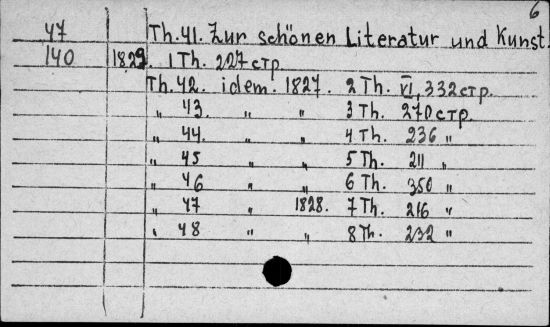 6
47 Th. 41. Zur schönen Literatur und Kunst.
140 1829. 1 Th. 227 стр.
Th. 42. idem. 1827. 2 Th. VI, 332 стр.
„ 43. „ „ 3 Th. 270 стр.
„ 44. „ „ 4 Th. 236 „
„ 45 „ „ 5 Th. 211 „
„ 46 „ „ 6 Th. 350 „
„ 47 „ 1828. 7 Th. 216 „
„ 48 „ „ 8 Th. 232 „